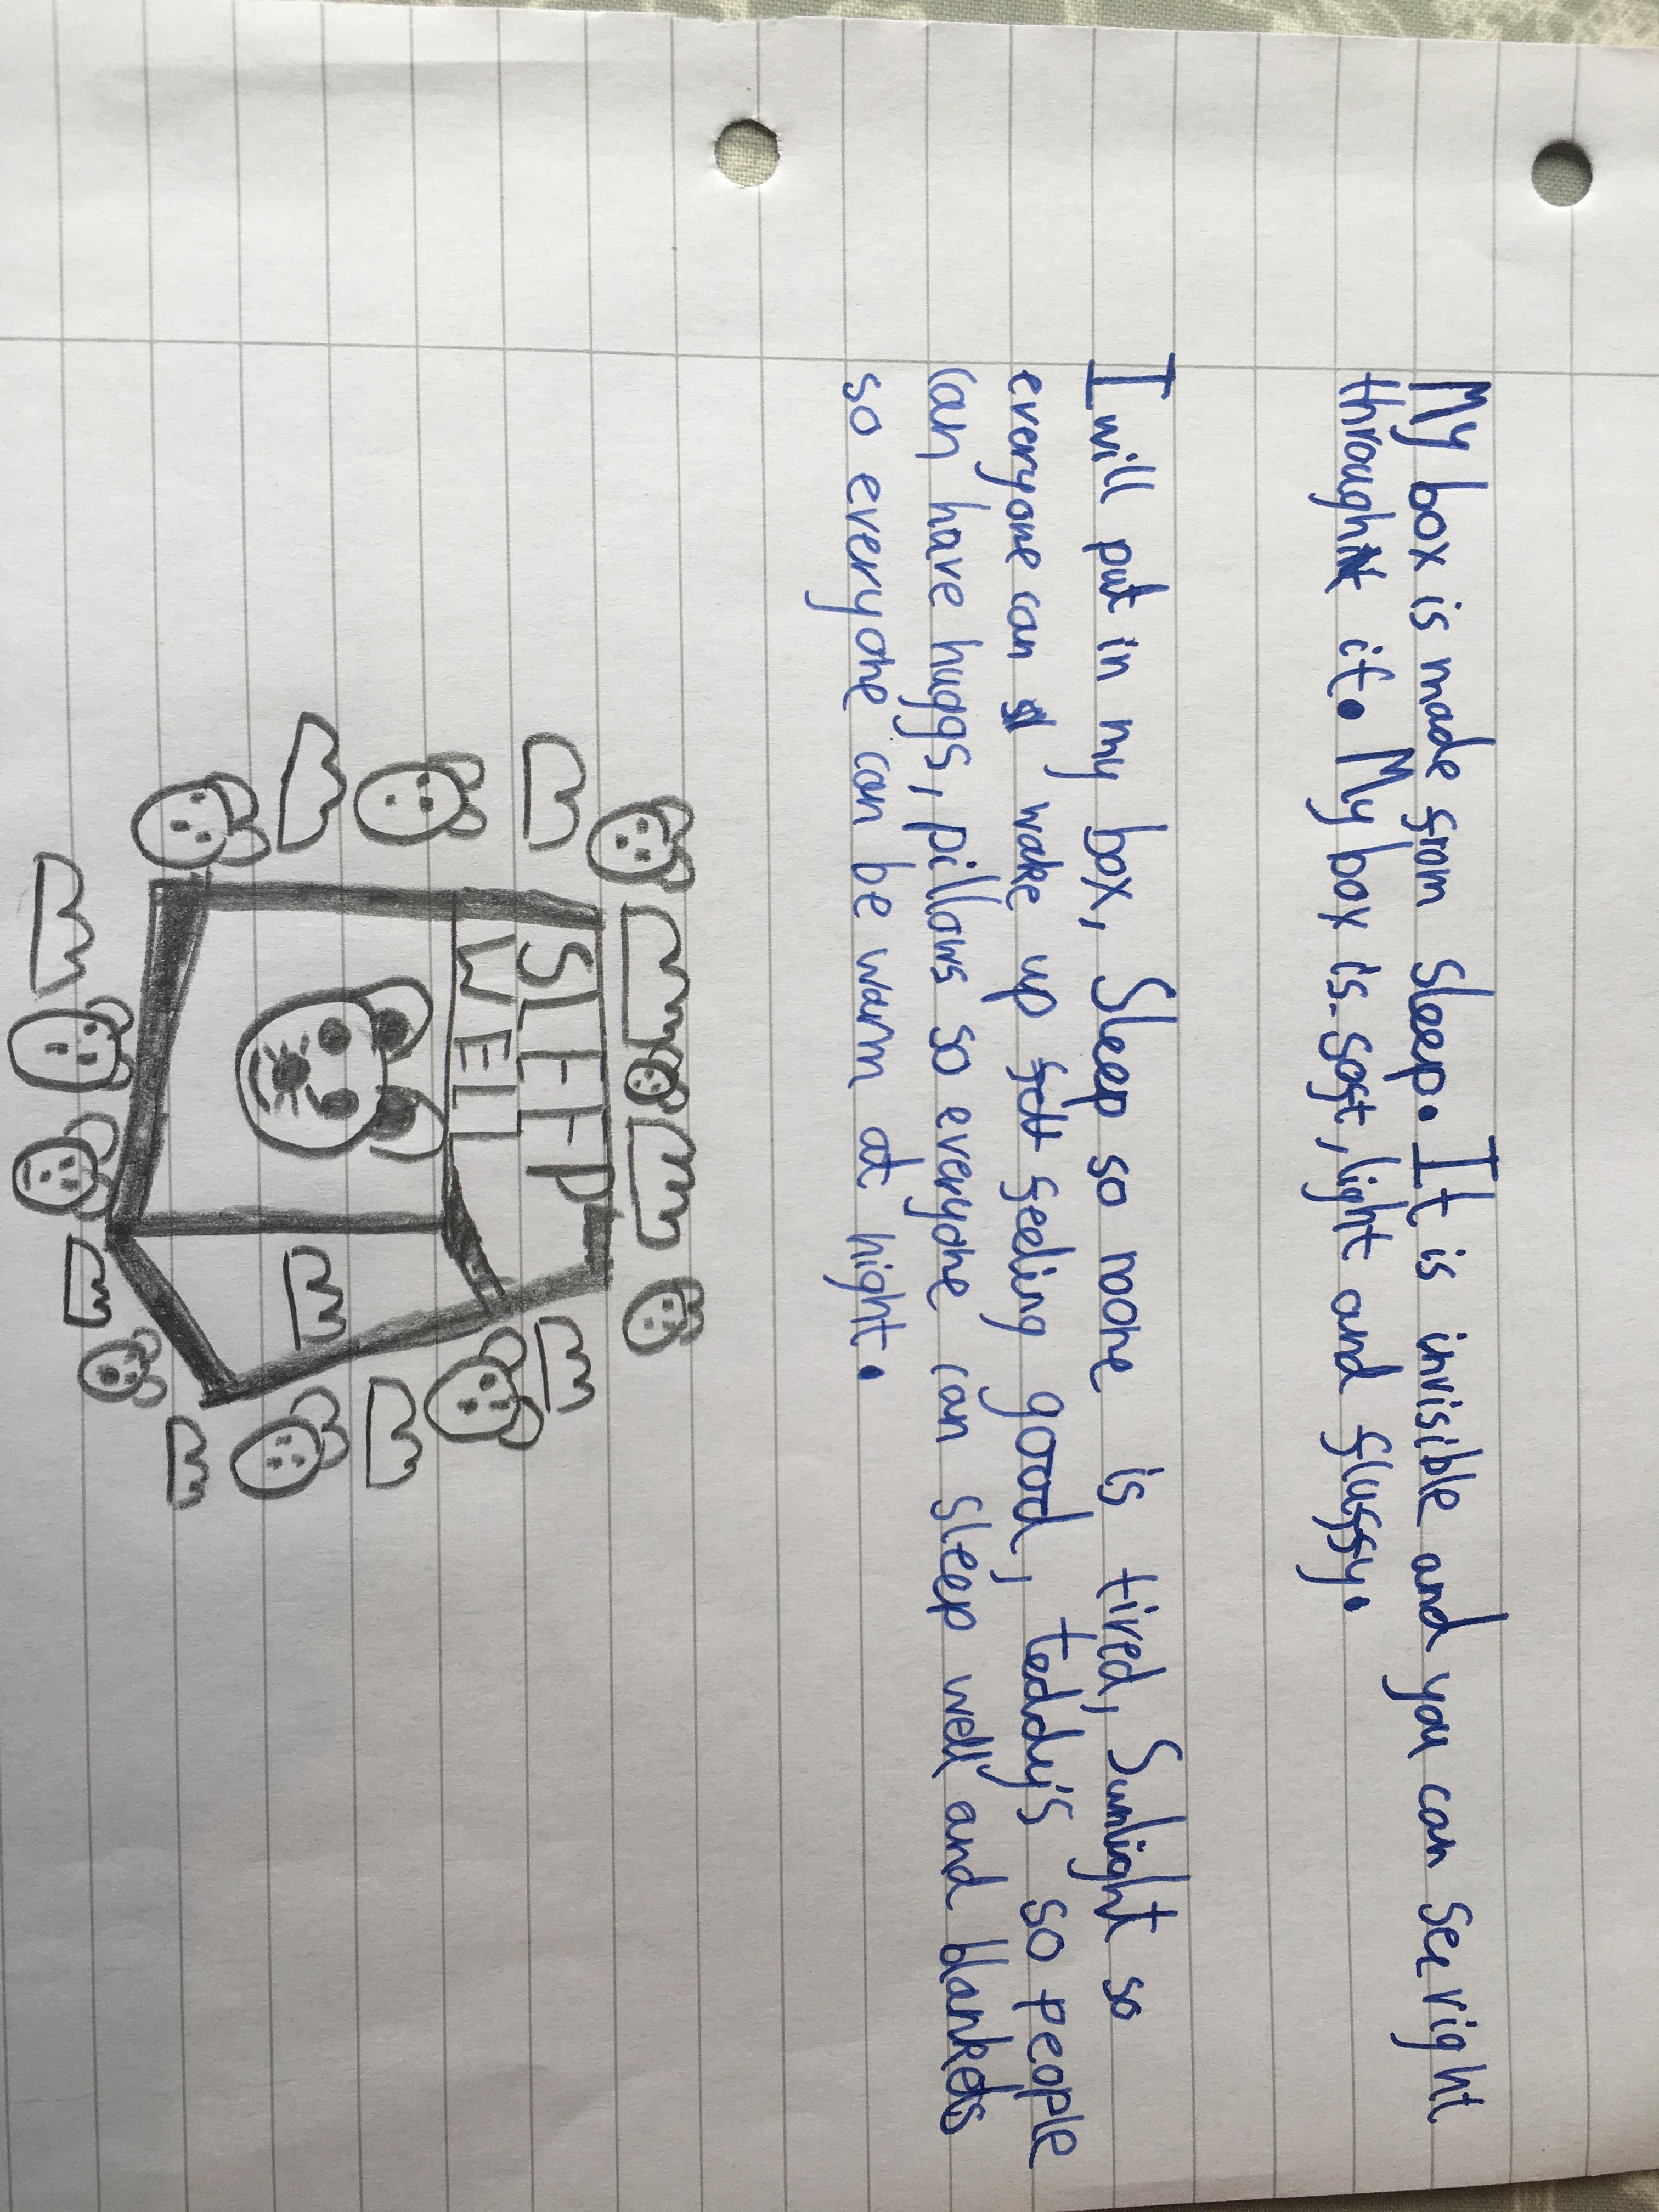 My box is made from Sleep. It is invisible and you can see right
through it. My box is soft, light and fluffy.
I will put in my box, Sleep so noone is tired, Sunlight so
everyone can wake up feeling good, teddy's so people
can have huggs, pillows so everyone can sleep well and blankets
so everyone can be warm at night.
SLEEP
WELL